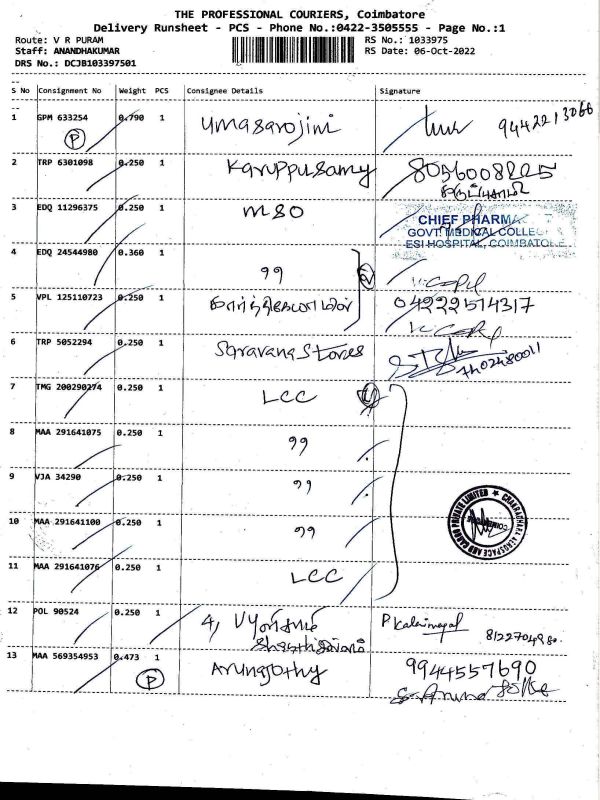 THE PROFESSIONAL COURIERS, Coimbatore
Delivery Runsheet - PCS - Phone No.:0422-3505555 - Page No.:1
Route: V R PURAM
RS No.: 1033975
Staff: ANANDHAKUMAR
RS Date: 06-Oct-2022
DRS No.: DCJB103397501
S No Consignment No Weight PCS Consignee Details Signature
1 GPM 633254 0.790 1 Umasarojini 9442213066
P
2 TRP 6301098 0.250 1 Karuppusamy 8056008225
3 EDQ 11296375 0.250 1 MSO
CHIEF PHARMA
GOVT. MEDICAL COLLEG
ESI HOSPITAL, COIMBATORE
4 EDQ 24544980 0.360 1 ,,
5 VPL 125110723 0.250 1 04222514317
6 TRP 5052294 0.250 1 Saravana Stores
7 TMG 200290274 0.250 1 LCC
8 MAA 291641075 0.250 1 ,,
9 VJA 34290 0.250 1 ,,
10 MAA 291641100 0.250 1 ,,
CHAKRADHARA AEROSPACE AND CARGO PRIVATE LIMITED
11 MAA 291641076 0.250 1 LCC
12 POL 90524 0.250 1 4, P Kalaimagal
13 MAA 569354953 0.473 1 Arunajothy 9944557690
P